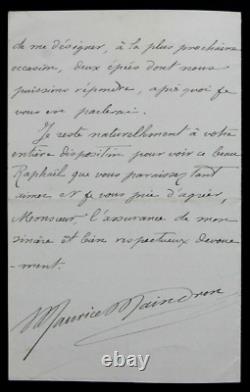 de me désigner, à la plus prochaine
occasion, deux épées dont nous
puissions répondre, après quoi je
vous en parlerai.
Je reste naturellement à votre
entière disposition pour voir ce beau
Raphaël que vous paraissez tant
aimer et je vous prie d'agréer,
Monsieur l'assurance de mon
sincère et bien respectueux dévoue-
ment.
Maurice Maindron